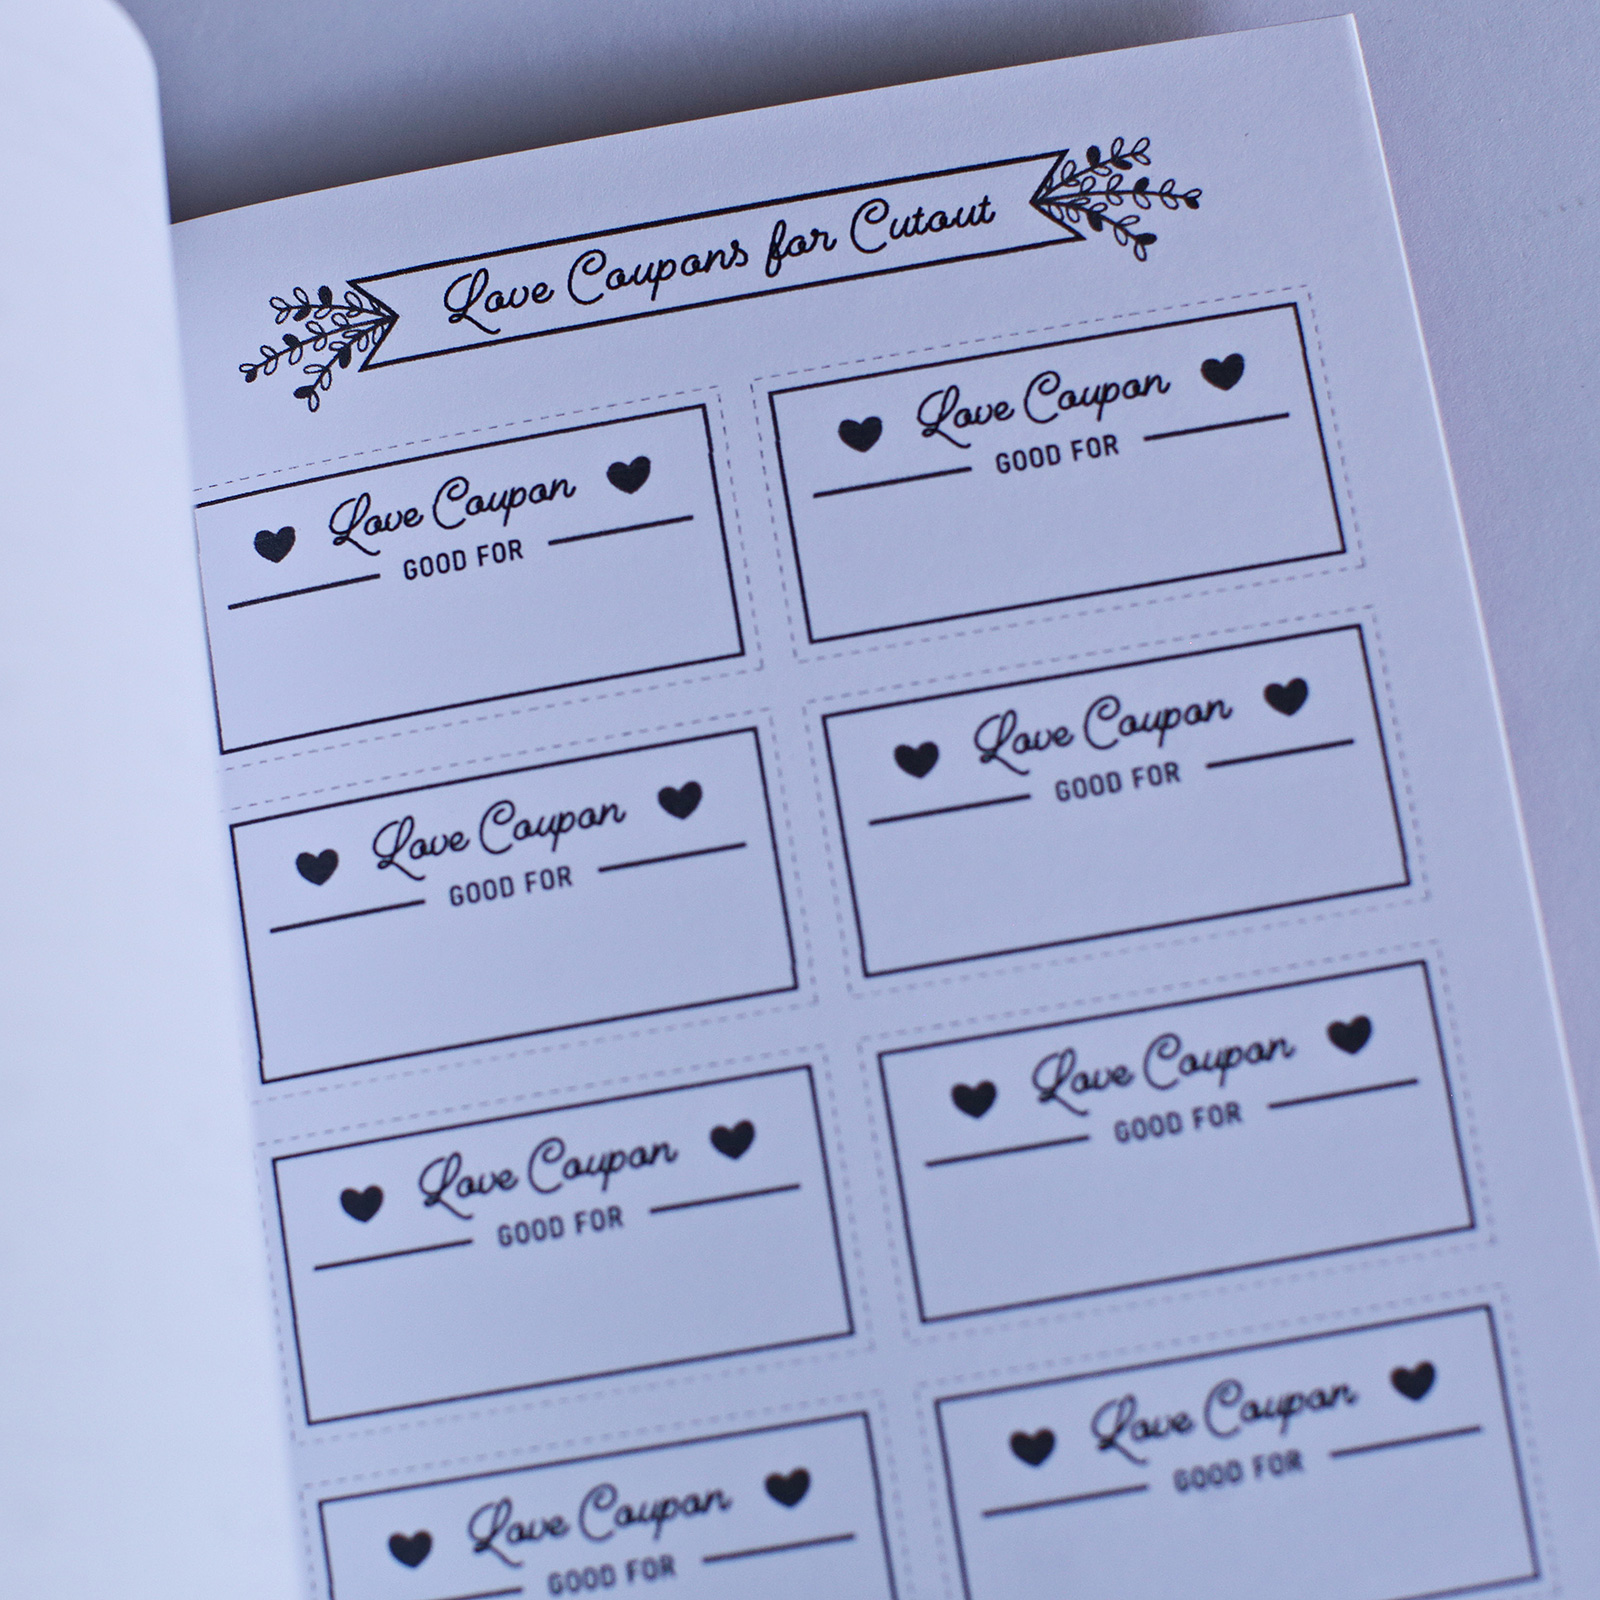 Love Coupons for Cutout
Love Coupon
GOOD FOR
Love Coupon
GOOD FOR
Love Coupon
GOOD FOR
Love Coupon
GOOD FOR
Love Coupon
GOOD FOR
Love Coupon
GOOD FOR
Love Coupon
GOOD FOR
Love Coupon
GOOD FOR